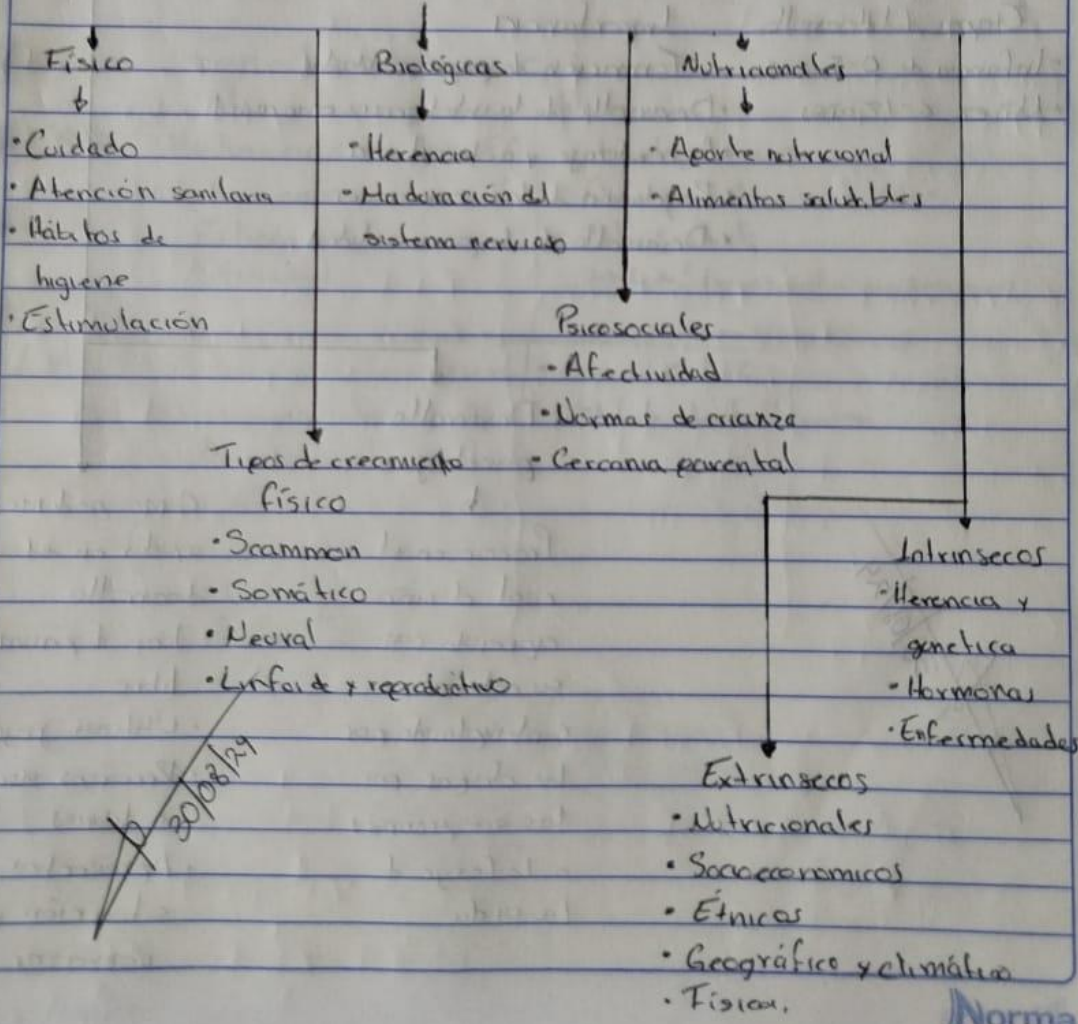 Físico
• Cuidado
• Atención sanitaria
• Hábitos de
higiene
• Estimulación
Biológicas
• Herencia
• Maduración del
sistema nervioso
Nutricionales
• Aporte nutricional
• Alimentos saludables
Psicosociales
• Afectividad
• Normas de crianza
• Cercania parental
Tipos de crecimiento
físico
• Scammon
• Somático
• Neural
• Linfoide y reproductivo
Intrinsecos
• Herencia y
genetica
• Hormonas
• Enfermedades
Extrinsecos
• Nutricionales
• Socioeconomicos
• Étnicos
• Geográfico y climático
• Físicos.
30/08/24
Norma